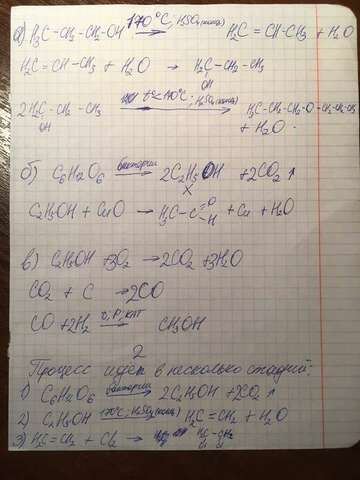 а) H₃C–CH₂–CH₂–OH 170°C; H₂SO₄(конц) → H₂C = CH–CH₃ + H₂O
H₂C = CH – CH₃ + H₂O → H₂C – CH₂ – CH₃
OH
2H₂C – CH₂ – CH₃ t°<140°C; H₂SO₄(конц) → H₃C–CH₂–CH₂–O–CH₂–CH₂–CH₃
OH
+ H₂O.
б) C₆H₁₂O₆ бактерии → 2C₂H₅OH + 2CO₂↑
X
C₂H₅OH + CuO → H₃C – C =O –H + Cu + H₂O
в) C₂H₅OH + 3O₂ → 2CO₂ + 3H₂O
CO₂ + C → 2CO
CO + 2H₂ t, P, кат → CH₃OH
2
Процесс идет в несколько стадий:
1) C₆H₁₂O₆ бактерии → 2C₂H₅OH + 2CO₂↑
2) C₂H₅OH 170°C, H₂SO₄(конц) → H₂C = CH₂ + H₂O
3) H₂C = CH₂ + Cl₂ → H₂C – CH₂
Cl Cl